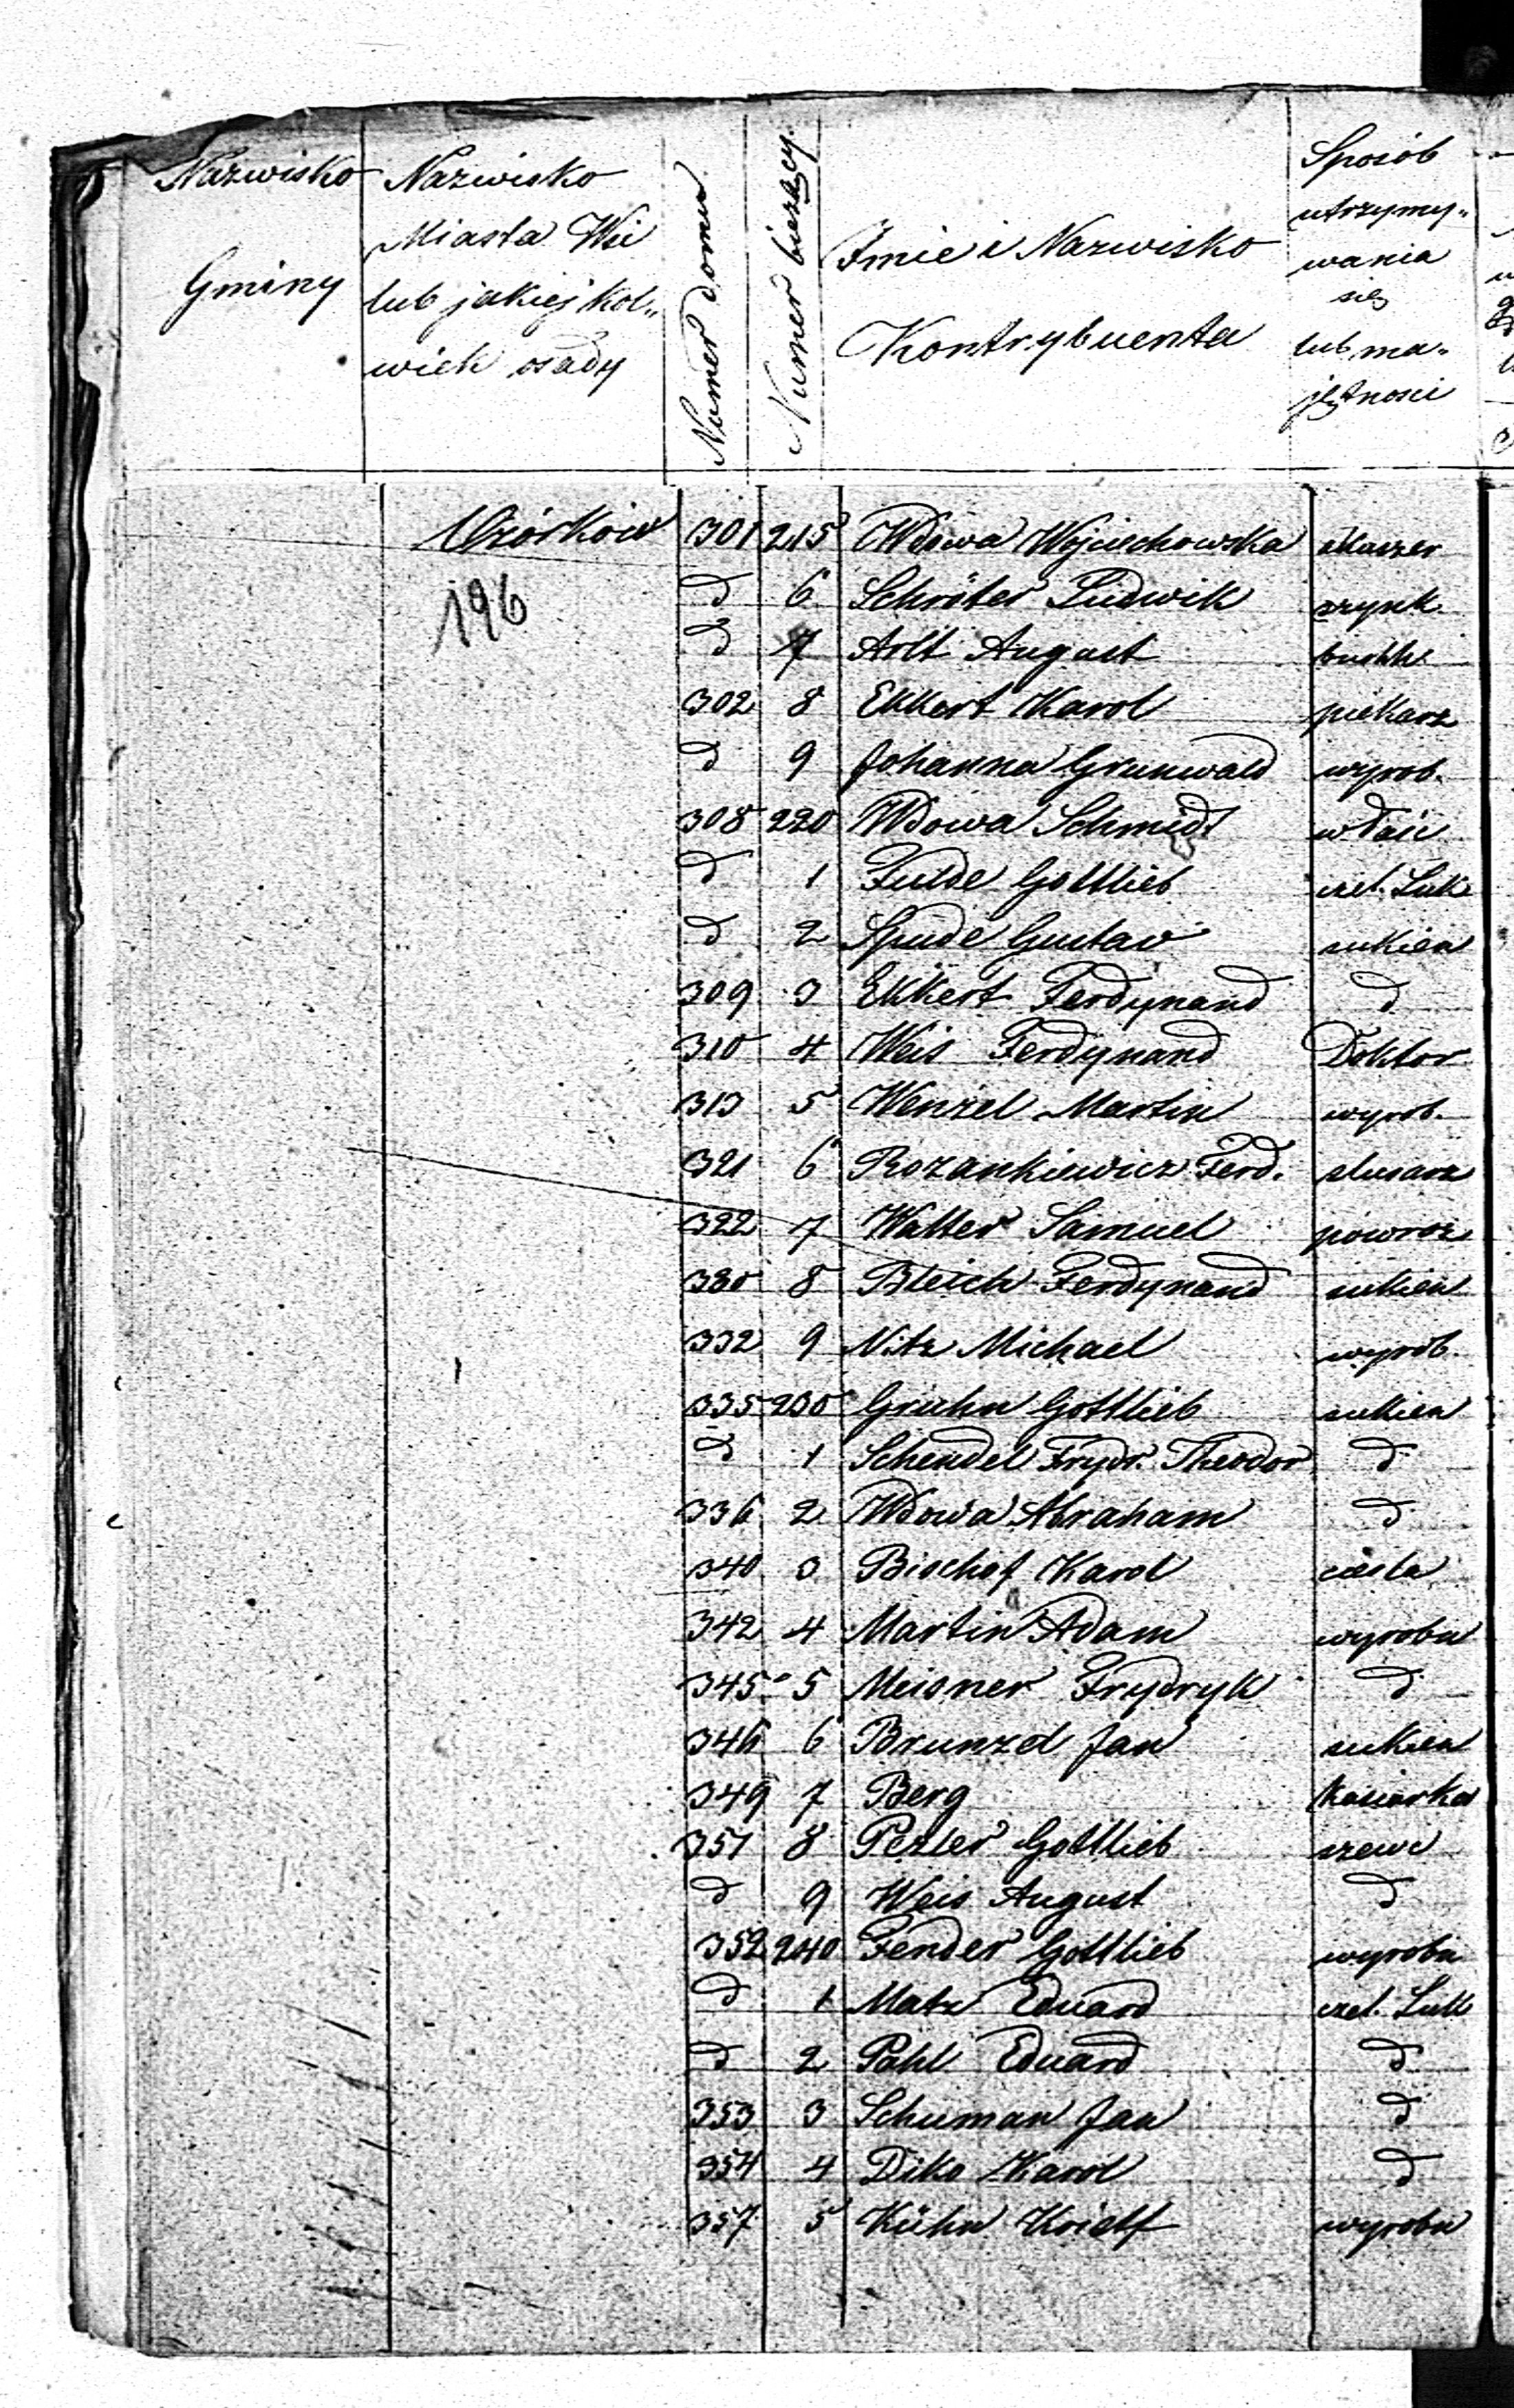 Nazwisko Gminy
Nazwisko Miasta Wsi lub jakiejkol„ wiek osady
Numer domu
Numer bieżący
Imie i Nazwisko Kontrybuenta
Sposób utrzymy„ wania się lub ma„ jętnosci
Ozórków 301 215 Wdowa Wojciechowska
196
d 6 Schröter Ludwik szynk.
d 7 Arlt August buchh.
302 8 Ekkert Karol piekarz
d 9 Johanna Grunwald wyrob.
308 220 Wdowa Schmidt właśc
d 1 Fulde Gottlieb czel. Suk
d 2 Spude Gustaw sukien
309 3 Ekkert Ferdynand d
310 4 Weis Ferdynand Doktor
313 5 Wenzel Martin wyrob.
321 6 Rozankiewicz Ferd. slusarz
322 7 Walter Samuel powroz
330 8 Bleich Ferdynand sukien
332 9 Nitz Michael wyrob.
335 230 Gruhn Gottlieb sukien
d 1 Schendel Frydr. Theodor d
336 2 Wdowa Abraham d
340 3 Bischof Karol ciesla
342 4 Martin Adam wyrobn
345 5 Meisner Frydryk d
346 6 Brunzel Jan sukien
349 7 Berg
351 8 Pezler Gottlieb szewc
d 9 Weis August d
352 240 Fender Gottlieb wyrobn
d 1 Matz Eduard czel. Suk
d 2 Pohl Eduard d
353 3 Schuman Jan d
354 4 Diko Karol d
357 5 Kühn wyrobn